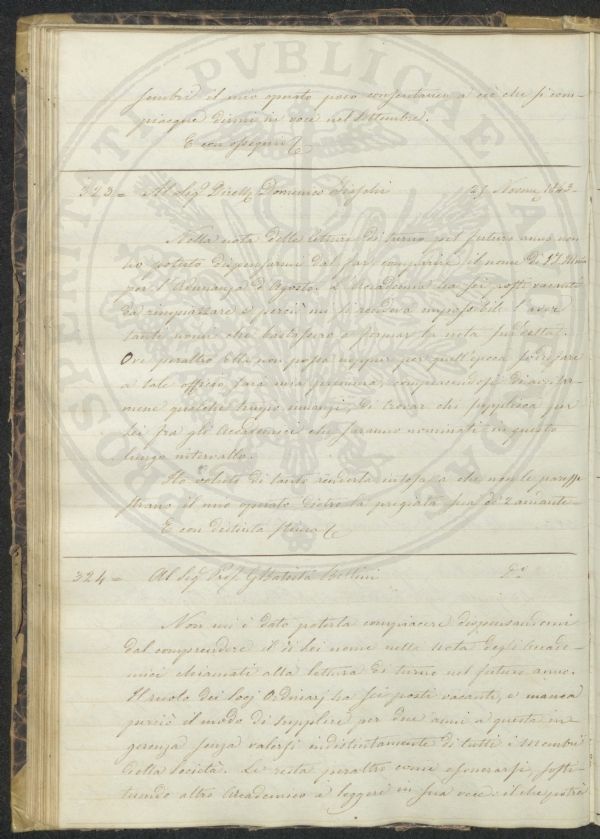 sembri il mio operato poco consentaneo a ciò che si com-
piacque dirmi in voce nel settembre.
E con ossequi
323 = Al Sig.r Dirett.e Domenico 29 Novem. 1843.
Nella nota delle letture di turno pel futuro anno non
ho potuto dispensarmi dal far comparire il nome di
per l'Adunanza d'Agosto. L'Accademia ha sei posti vacanti
da rimpiazzare e perciò mi si rendeva impossibile l'aver
tanti nomi che bastassero a formar la nota sud.detta.
Ove peraltro Ella non possa neppur per quell'epoca
a tale officio, sarà mia premura, compiacendosi di avvisar-
mene qualche tempo innanzi, di trovar chi supplisca per
lei fra gli Accademici che saranno nominati in questo
lungo intervallo.
Ho voluto di tanto renderla intesa a che non le paresse
strano il mio operato dietro la pregiata sua de' 2 andante.
E con distinta stima
324 = Al Sig.r Prof. G. Batista Bellini d.o
Non mi è dato poterla compiacere dispensandomi
dal comprendere il di Lei nome nella Nota degli Acade-
mici chiamati alla lettura di turno nel futuro anno.
Il ruolo dei Socj Ordinarj ha sei posti vacanti, e manca
perciò il modo di supplire per due anni a questa in-
gerenza senza valersi indistintamente di tutti i Membri
della Società. Le resta peraltro come esonerarsi, sosti-
tuendo altro Accademico a leggere in sua vece: il che potrà